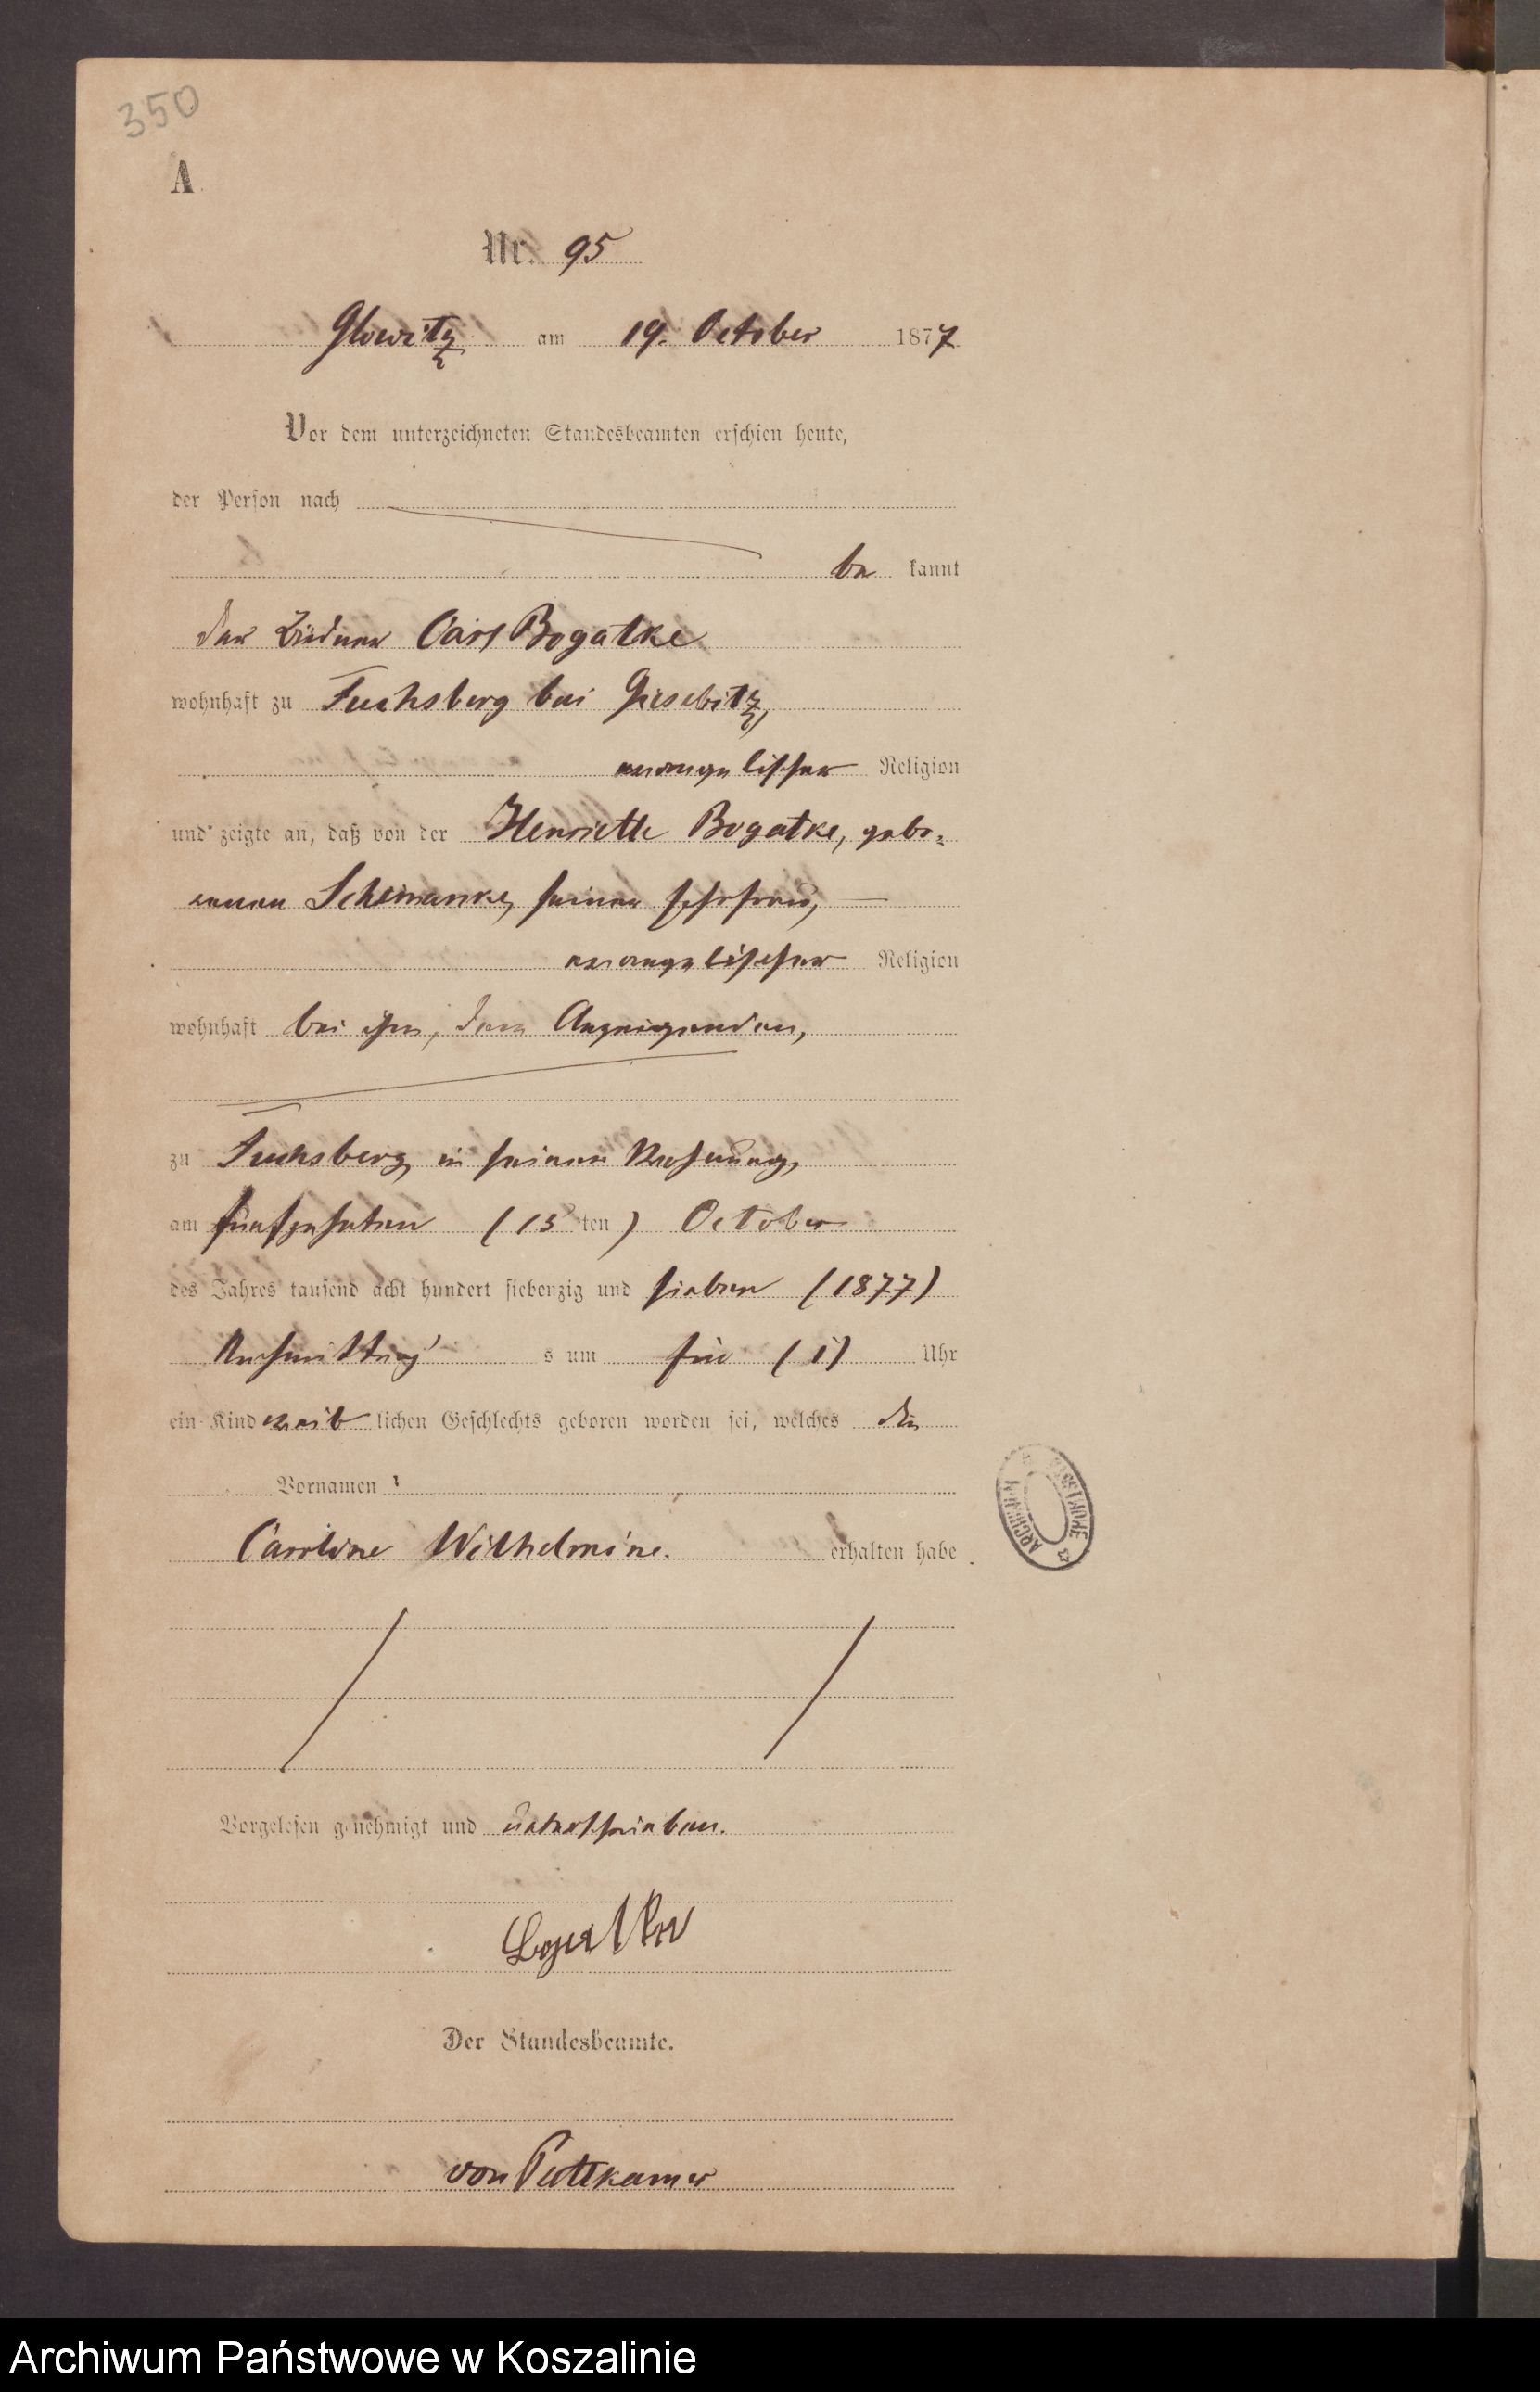 350
A.
Nr. 95
Glowitz am 19. October 1877
Vor dem unterzeichneten Standesbeamten erschien heute,
der Person nach
be kannt
der Büdner Carl Bogatke
wohnhaft zu Fuchsberg bei Giesebitz,
evangelischer Religion
und zeigte an, daß von der Henriette Bogatke, gebo-
renen Schimanke, seiner Ehefrau,
evangelischer Religion
wohnhaft bei ihm, dem Anzeigenden,
zu Fuchsberg, in seiner Wohnung,
am fünfzehnten (15 ten) October
des Jahres tausend acht hundert siebenzig und sieben (1877)
Nachmittag s um ein (1) Uhr
ein Kind weib lichen Geschlechts geboren worden sei, welches die
Vornamen
Caroline Wilhelmine. erhalten habe
Vorgelesen genehmigt und unterschrieben.
Bogatke
Der Standesbeamte.
von Puttkamer
ARCHIWUM
Archiwum Państwowe w Koszalinie